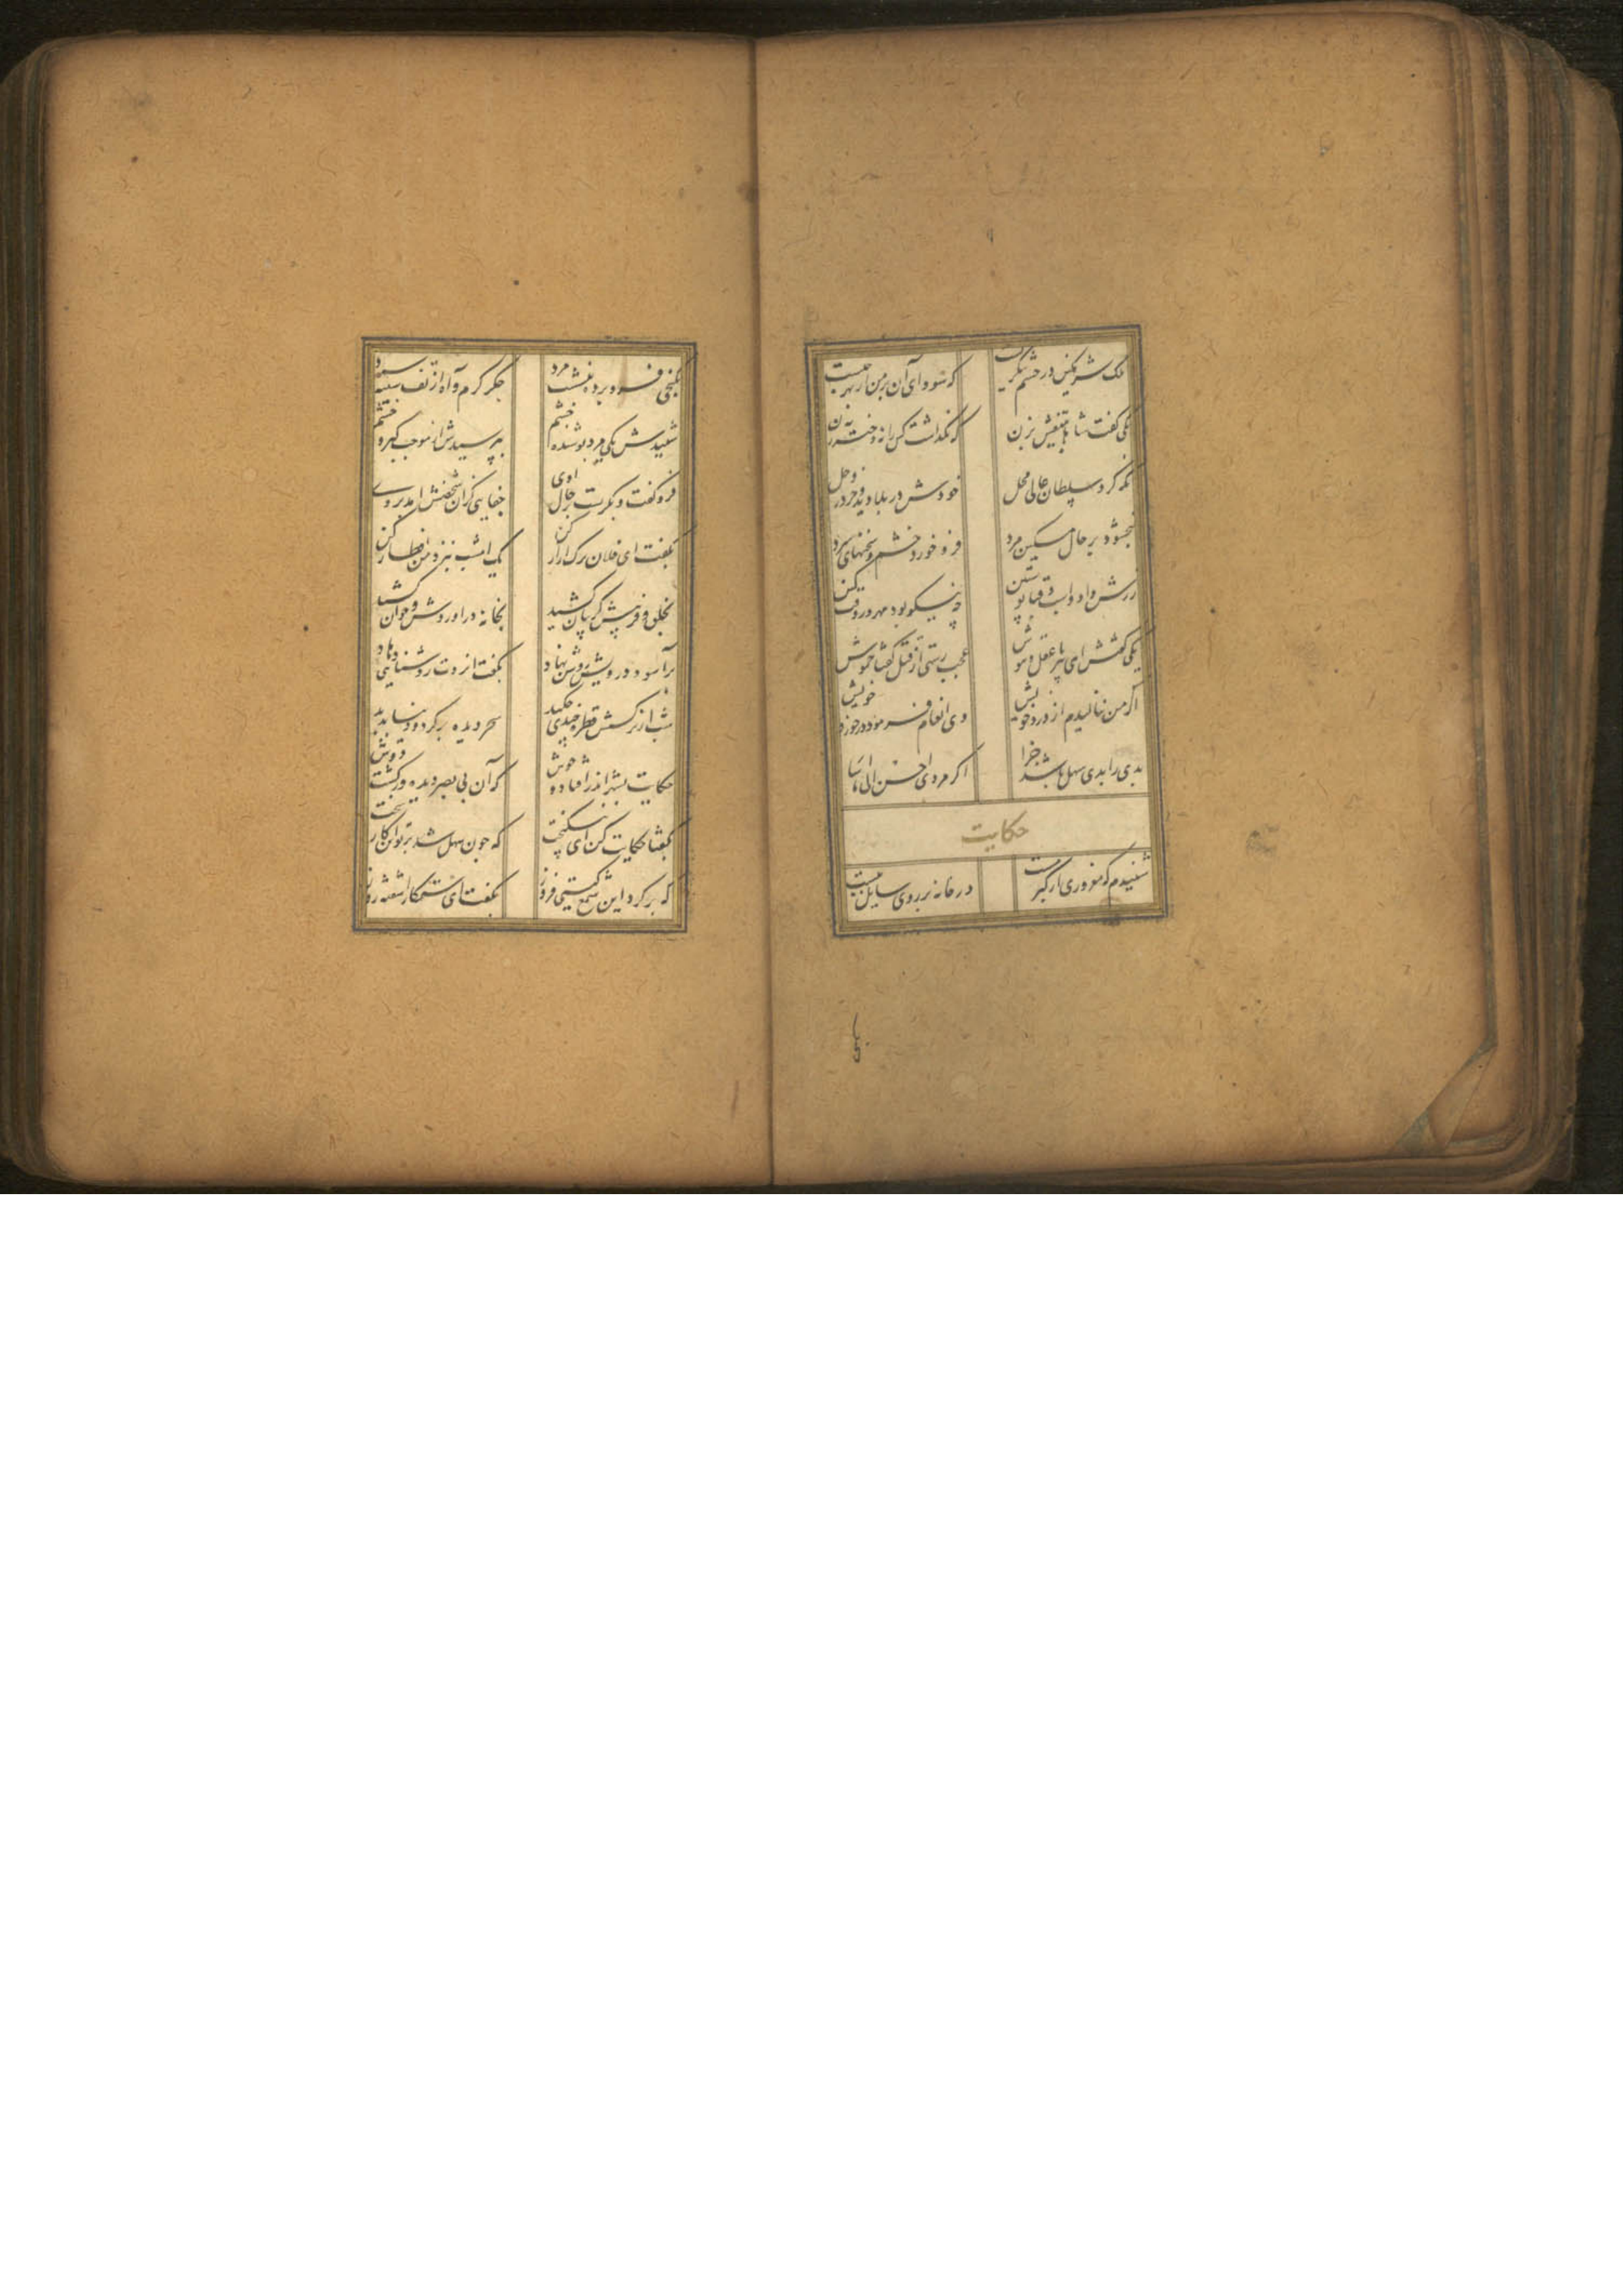 ملک شرمگین در حشم بنگریست که سودای آن بر من از بهر چیست
یکی گفت شاها بتیغش بزن که نگذاشت کس را نه دختر نه زن
نگه کرد سلطان عالی محل خودش در بلا دید و خر در وحل
ببخشود بر حال مسکین مرد فرو خورد خشم و سخنهای سرد
زرش داد و اسب و قبا پوستین چه نیکو بود مهر در وقت کین
یکی گفتش ای پیر بی عقل و هوش عجب رستی از قتل گفتا خموش
اگر من بنالیدم از درد خویش وی انعام فرمود در خورد خویش
بدی را بدی سهل باشد جزا اگر مردی احسن الی من اسا
حکایت
شنیدم که مغروری از کبر مست در خانه بر روی سایل ببست
بکنجی
بکنجی فرو برده بنشست مرد جگر گرم و آه از تف سینه سرد
شنیدش یکی مرد پوشیده چشم بپرسیدش از موجب کبر و خشم
فرو گفت و بگریست بر خاک کوی جفایی کزان شخصش آمد بروی
بگفت ای فلان ترک آزار کن یک امشب بنزد من افطار کن
بخلق و فریبش گریبان کشید بخانه درآوردش و خوان کشید
برآسود درویش روشن نهاد بگفت ایزدت روشنایی دهاد
شب از نرگسش قطره چندی چکید سحر دیده بر کرد و دنیا بدید
حکایت بشهر اندر افتاد و جوش که آن بی بصر دیده ور گشت دوش
بگفتا حکایت کن ای نیکبخت که چون سهل شد بر تو این کار سخت
که بر کرد این شمع گیتی فروز بگفت ای ستمکار آشفته روز